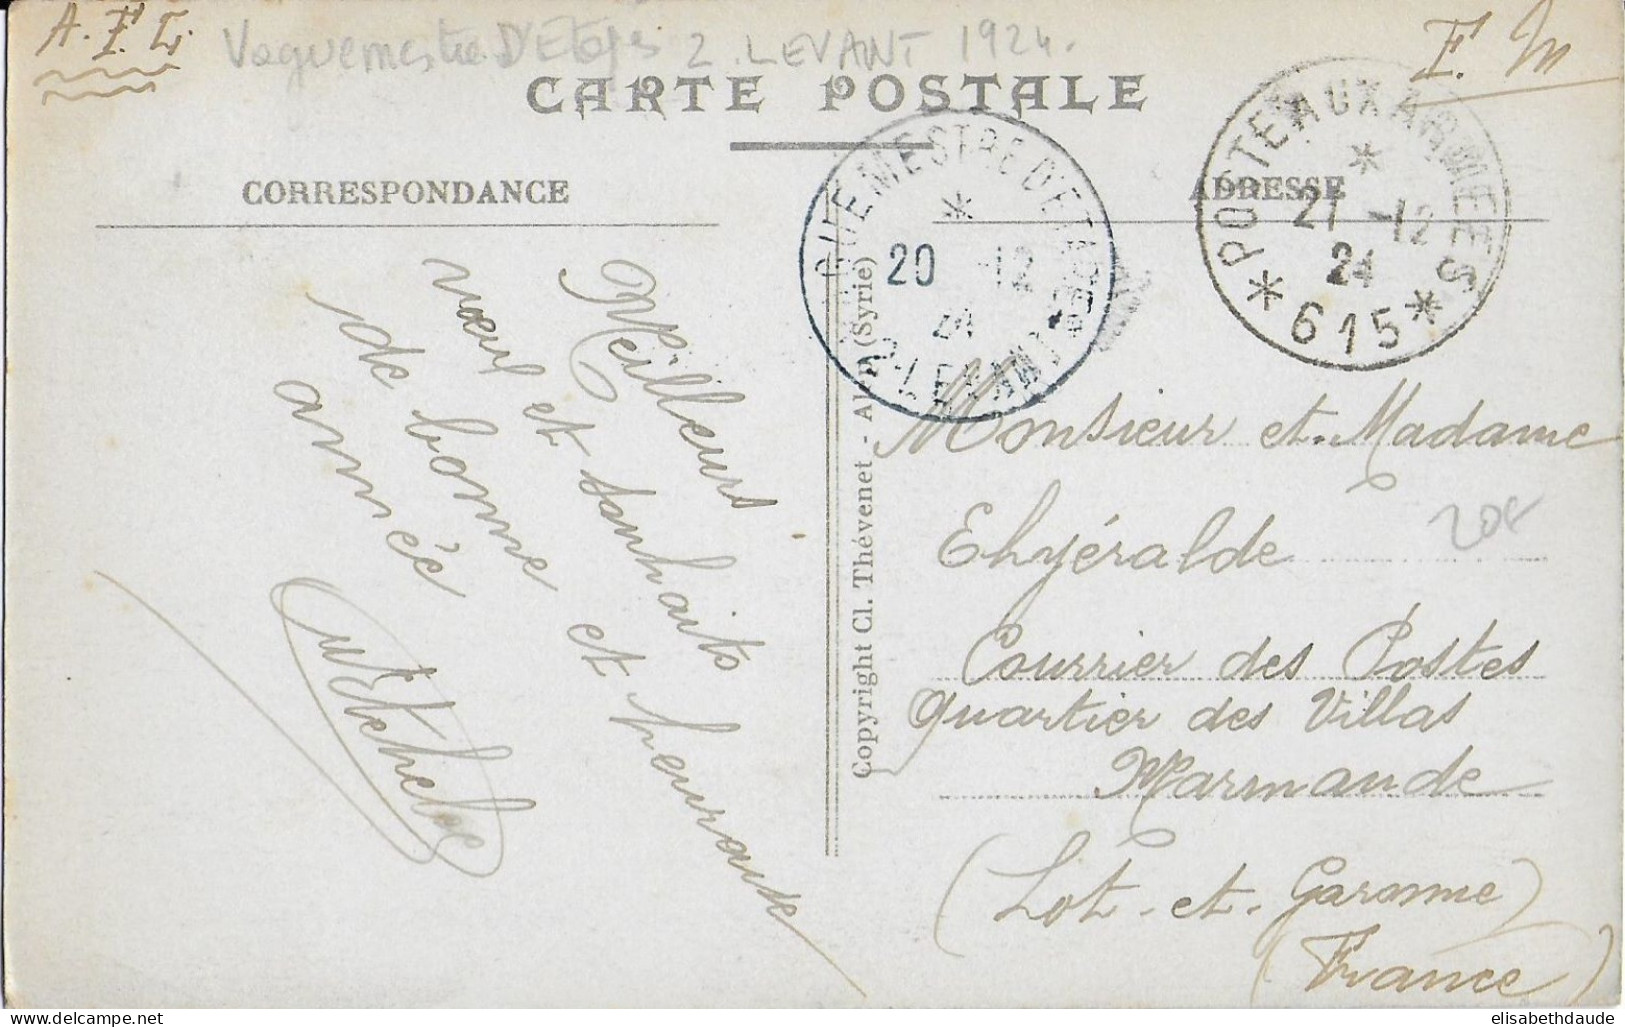 A. F. L.
Vaguemestre D'Etapes 2. LEVANT 1924.
F. M
CARTE POSTALE
CORRESPONDANCE
ADRESSE
GUEMESTRE D'ETAPES
*
20 -12
24
2-LEVANT
POSTE AUX ARMEES
*
21 -12
24
* 615 *
Meilleurs
vœux et souhaits
de bonne et heureuse
année
Copyright Cl. Thévenet - Alep (Syrie)
Monsieur et Madame
Ehyéralde
Courrier des Postes
Quartier des Villas
Marmande
(Lot-et-Garonne)
(France)
elisabethdaude